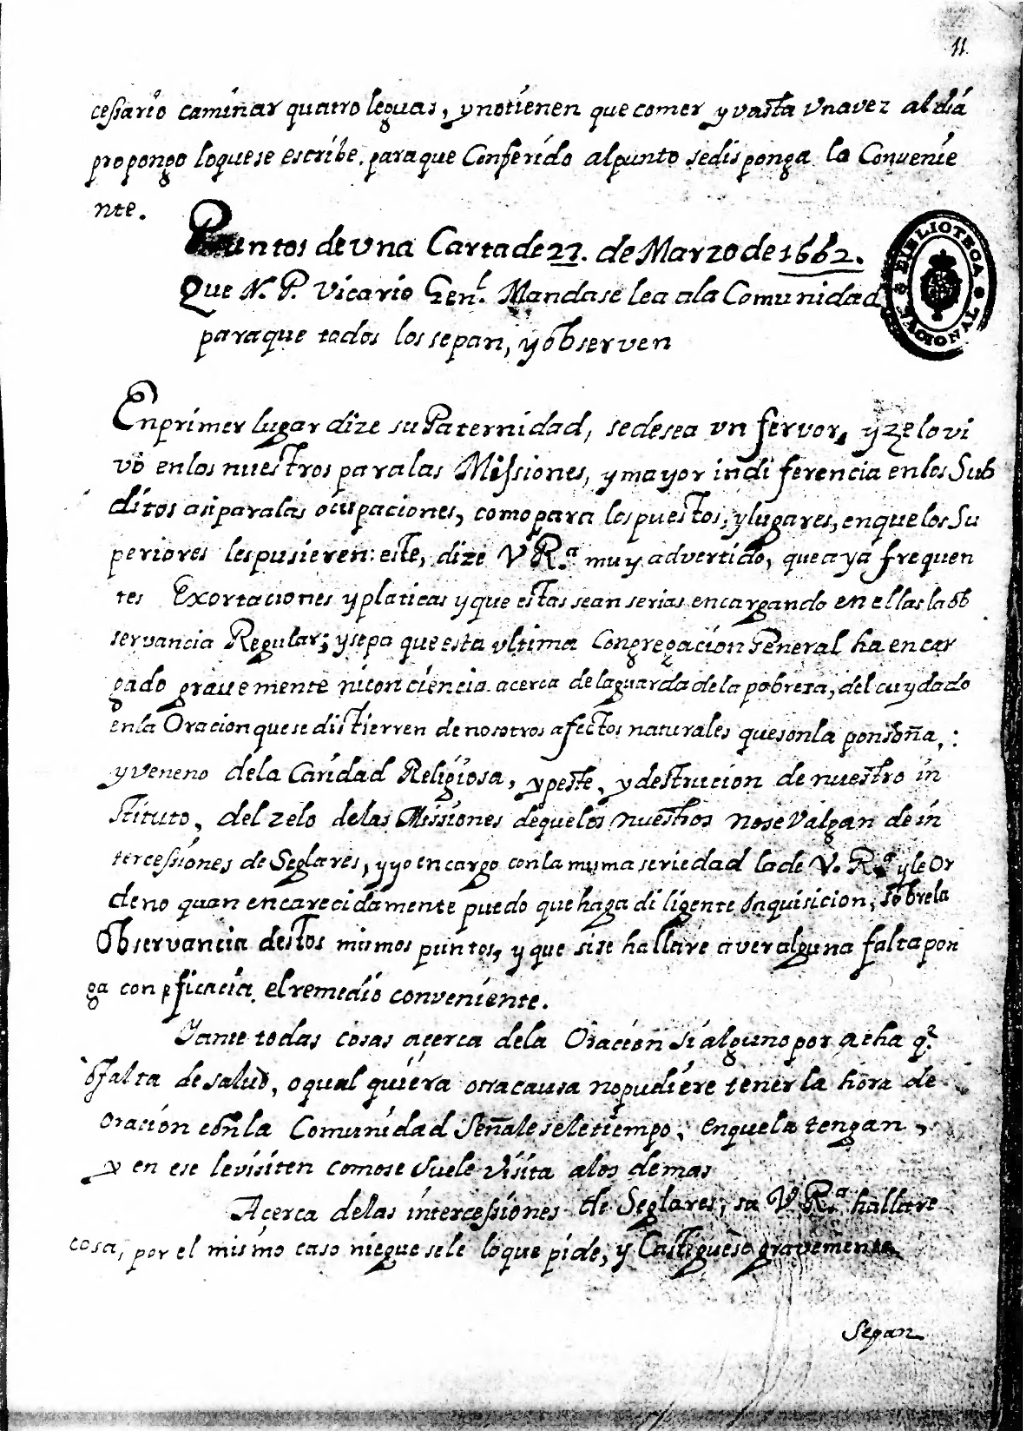 11
cessario caminar quatro leguas, y notienen que comer y vasta Unavez al dia
propongo loquese escribe, paraque Conferido alpunto sedisponga lo Convenie
nte.
Puntos de Una Carta de 27. de Marzo de 1662.
Que N. P. Vicario Gen.l Manda se lea ala Comunidad
paraque todos los sepan, y observen
BIBLIOTECA NACIONAL
Enprimer lugar dize su Paternidad, sedesea vn fervor, y zelo vi
vo enlos nuestros paralas Missiones, y mayor indiferencia enlos Sub
ditos asi paralas ocupaciones, como para lospuestos, y lugares, enque los Su
periores lespusieren: este, dize V R.a muy advertido, que aya frequen
tes Exortaciones y platicas y que estas sean serias encargando en ellas la ob
servancia Regular; y sepa que esta vltima Congregacion General ha encar
gado gravemente niconciencia acerca de laguarda de la pobreza, del cuydado
enla Oracion quese distierren de nosotros afectos naturales quesonla ponsoña,
y veneno dela Caridad Religiosa, y peste, y destrucion de nuestro in
stituto, del zelo delas Missiones dequelos nuestros nose Valgan de in
tercessiones de Seglares, y yo encargo con la misma seriedad la de V. R.a y le Or
deno quan encarecidamente puedo que haga diligente Inquisicion, sobrela
Observancia destos mismos puntos, y que si se hallare aver alguna falta pon
ga con eficacia el remedio conveniente.
Yante todas cosas acerca dela Oracion si alguno por achaq.e
o falta de salud, o qual quiera otra causa nopudiere tener la hora de
Oracion conla Comunidad Señalesele tiempo, enquela tengan,
y en ese levisiten comose suele Visita alos demas
Acerca delas intercessiones de Seglares, sa V R.a hallare
cosa, por el mismo caso nieguesele loque pide, y Castiguese gravemente
Segan